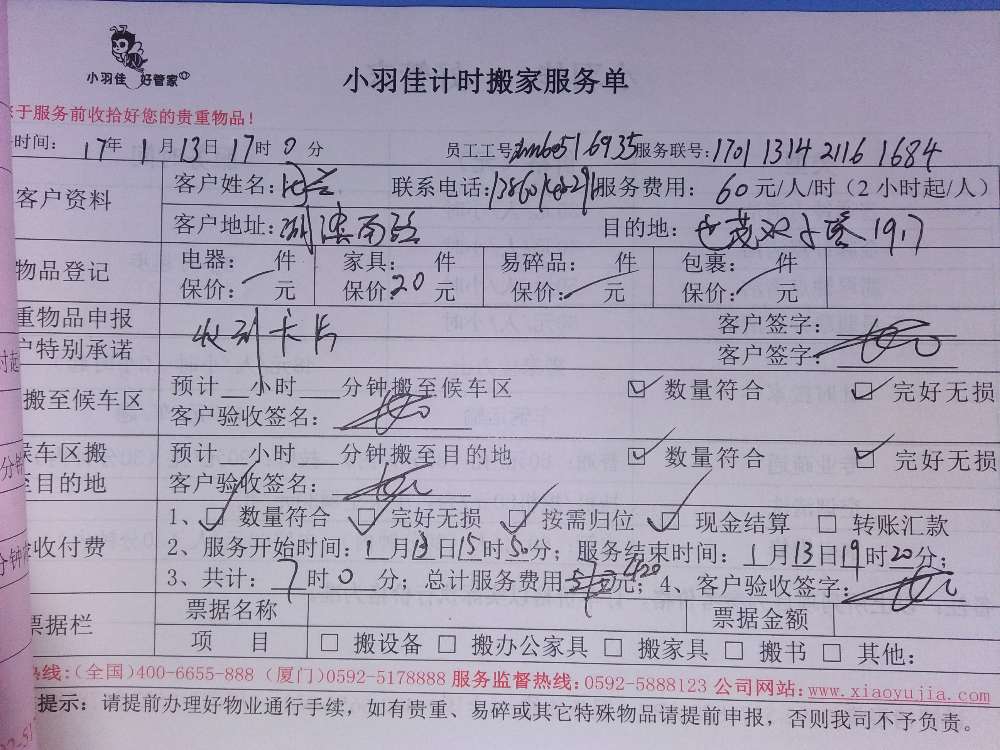 小羽佳 好管家
小羽佳计时搬家服务单
于服务前收拾好您的贵重物品！
时间： 17年 1月13日17时0分 员工工号 服务联号：1701 1314 2116 1684
客户资料 客户姓名： 联系电话： 服务费用： 60元/人/时（2小时起/人）
客户地址： 南路 目的地： 世茂双子塔 1917
物品登记 电器： 件 家具： 件 易碎品： 件 包裹： 件
保价： 元 保价：20元 保价： 元 保价： 元
重物品申报 收到卡片 客户签字：
户特别承诺 客户签字：
搬至候车区 预计 小时 分钟搬至候车区 ☑ 数量符合 ☑ 完好无损
客户验收签名：
候车区搬 预计 小时 分钟搬至目的地 ☑ 数量符合 ☑ 完好无损
至目的地 客户验收签名：
1、☑ 数量符合 ☑ 完好无损 ☑ 按需归位 ☑ 现金结算 □ 转账汇款
收付费 2、服务开始时间：1月13日15时50分；服务结束时间：1月13日19时20分；
3、共计：7时0分；总计服务费用 420元；4、客户验收签字：
票据栏 票据名称 票据金额
项 目 □ 搬设备 □ 搬办公家具 □ 搬家具 □ 搬书 □ 其他：
热线：(全国)400-6655-888 (厦门)0592-5178888 服务监督热线：0592-5888123 公司网站：www.xiaoyujia.com
提示：请提前办理好物业通行手续，如有贵重、易碎或其它特殊物品请提前申报，否则我司不予负责。